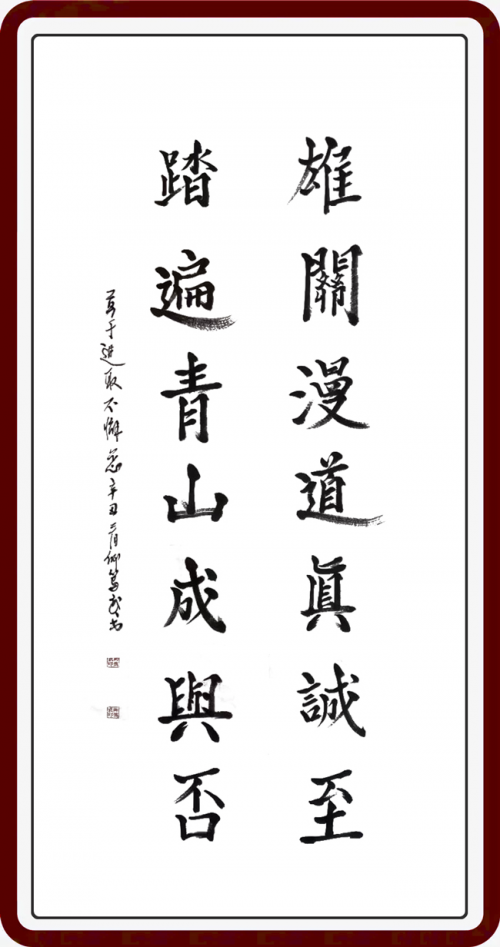 雄關漫道眞誠至
踏遍青山成與否
于進取不懈怠辛丑二月